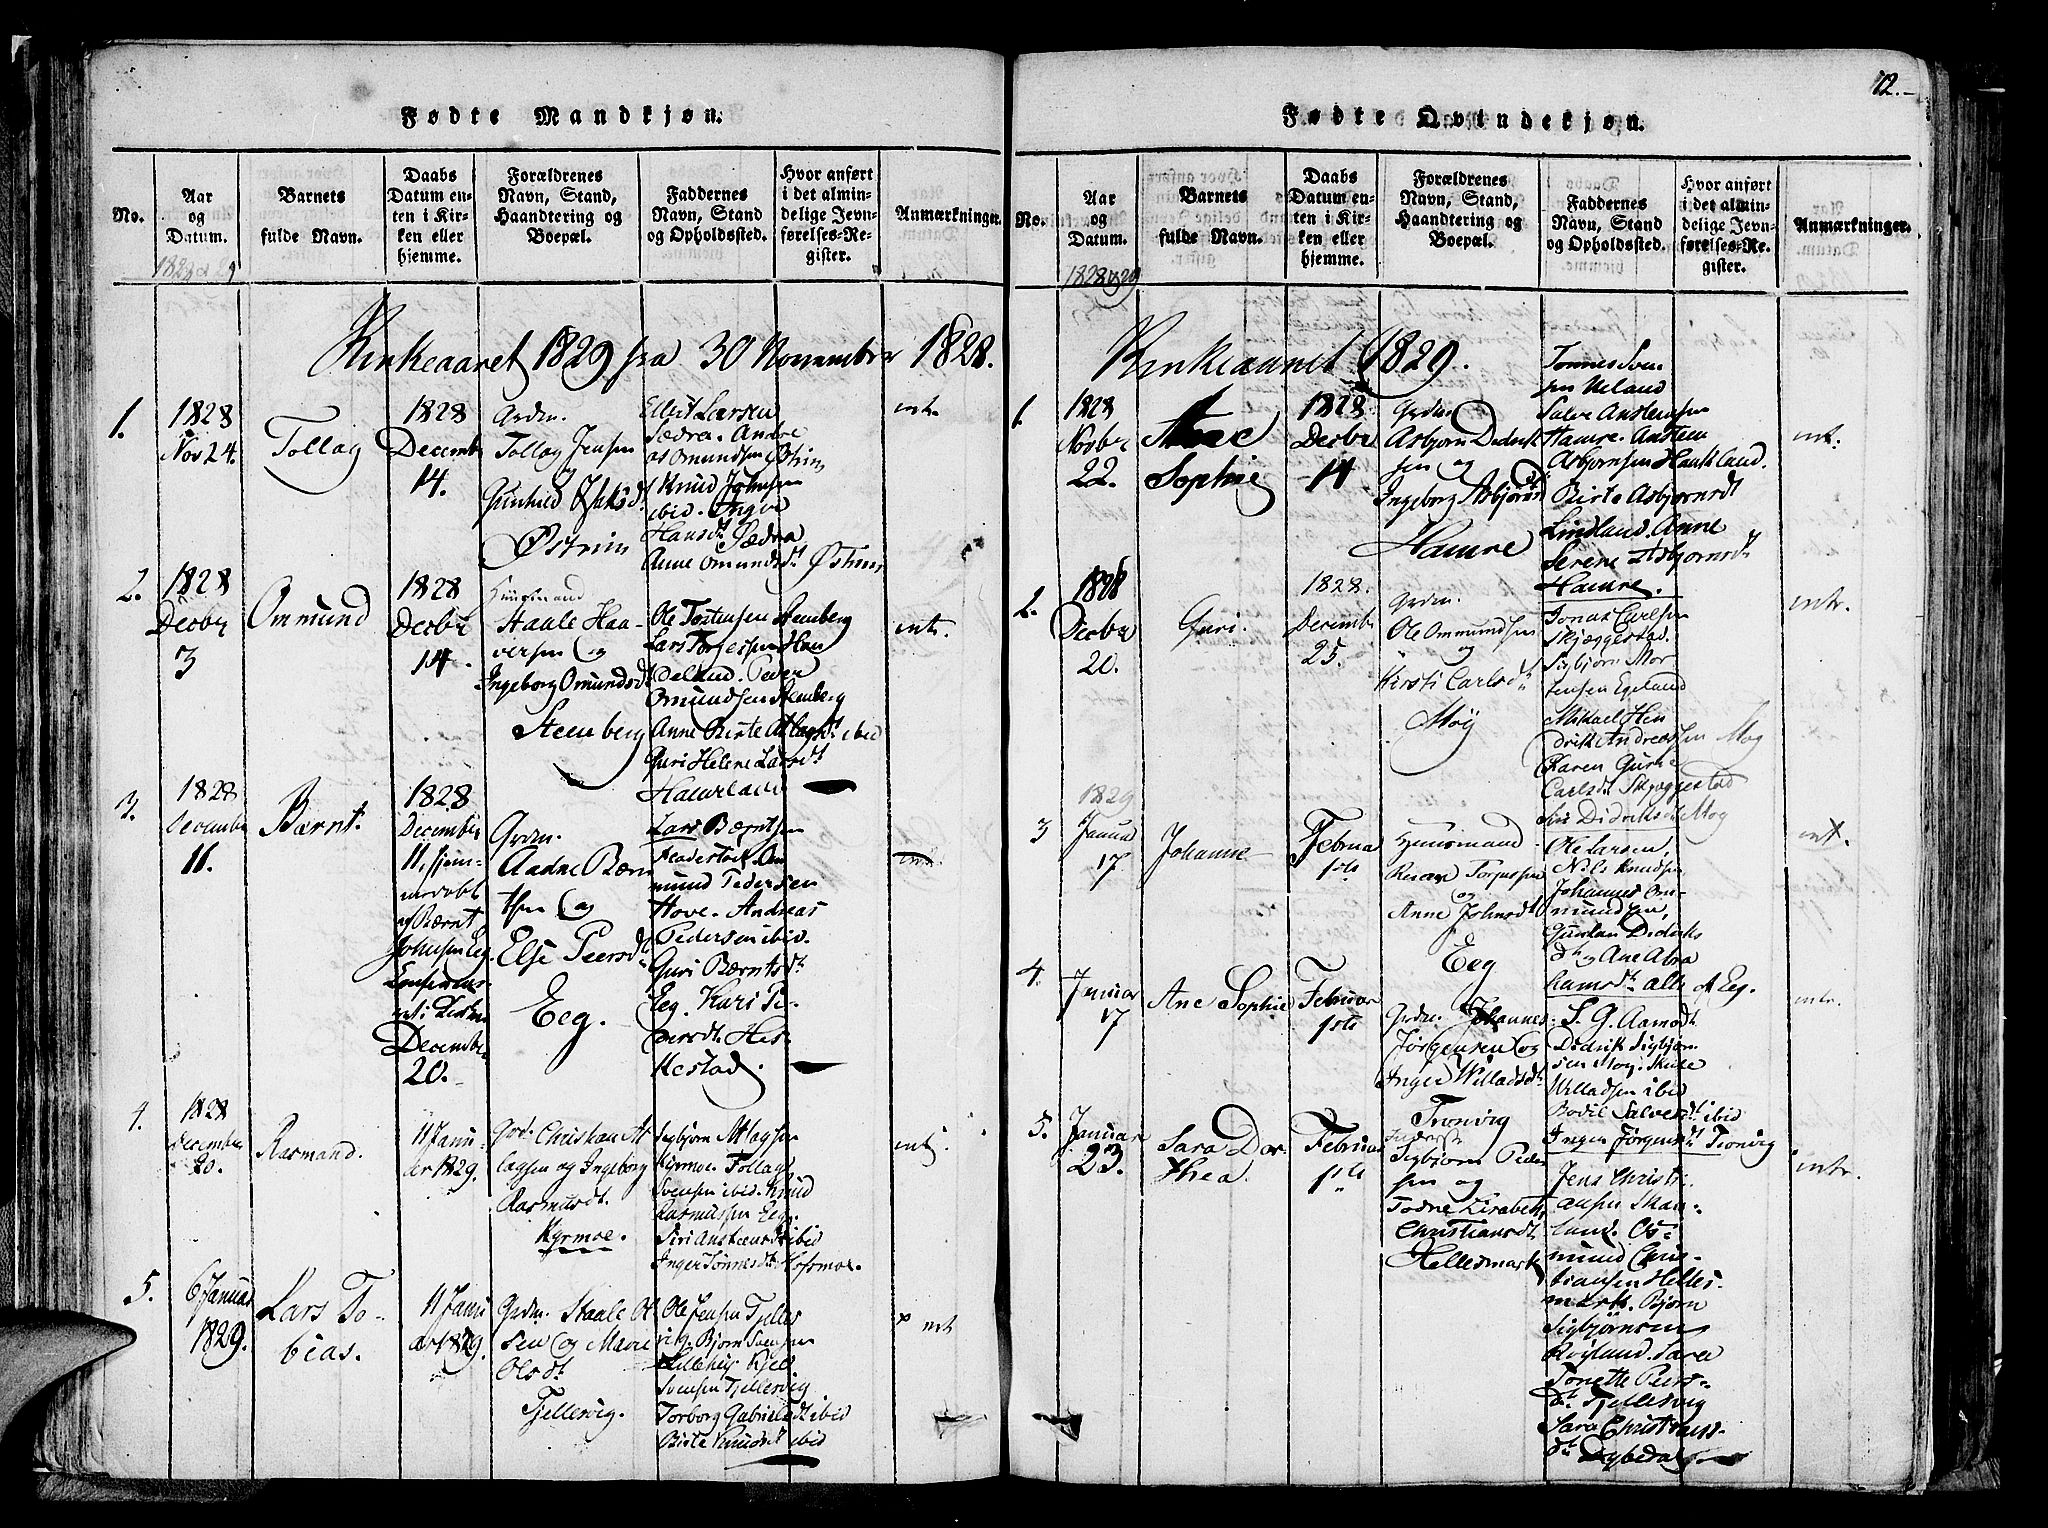 Fødte Mandkjøn.
No.
Aar
og
Datum.
Barnets
fulde Navn.
Daabs
Datum en-
ten i Kir-
ken eller
hjemme.
Forældrenes
Navn, Stand,
Haandtering og
Boepæl.
Faddernes
Navn, Stand
og Opholdssted.
Hvor anført
i det almin-
delige Jevn-
førelses-Re-
gister.
Anmærkninger.
Kirkeaaret 1829 fra 30 November 1828.
1.
1828
Nov 24.
Tollag
1828
Decemb
14.
Grdm.
Tollag Jensen
og
Gunhild Isaksd.
Østrim
Ellert Larsen
Sædra. Andre
as Omundsen Østrim
Knud Johnsen
ibid. Ingve
Hansd. Sædra
Anne Omundsdt Østrim
int.
2.
1828
Decbr
3
Ommund
1828
Decbr
14.
Huusmand
Staale Haa-
versen og
Ingeborg Omundsdt
Steenberg
Ole Tostensen Stenberg
Lars Torgersen Han
deland. Peder
Omundsen Stenberg
Anne Birte Atlagsdt ibid
Guri Helene Larsdt
int.
3.
1828
December
11.
Bærnt.
1828
December
11, hjem-
medøbt
af Bærnt
Johnsen Eeg
December
20.
Grdm.
Aadne Bærn
tsen og
Else Peersdt
Eeg.
Lars Bærntsen
Om
mund Pedersen
Hove. Andreas
Pedersen ibid.
Guri Bærntsdt
Eeg. Kari Pe-
dersdt Hes-
kestad.
int.
4.
1828
December
20.
Rasmund.
11 Janu-
ar 1829.
Grdm. Christian At
lagsen og Ingeborg
Rasmusdt.
Kyrmoe.
Sigbjørn Atlagsen
Kyrmoe. Tollag
Svensen ibid. Knud
Rasmussen Eeg.
Siri Anstensdt ibid
Inger Tønnesdt Hofsmoe.
int.
5.
6 Januar
1829.
Lars To-
bias.
11 Janu
ar 1829.
Grdm. Staale Ol
sen og Marie
Olsdt
Tjellesvig.
Ole Jensen Tjelles
vig. Bjørn Svensen
Kjel
Svensen Tjellesvig
Torborg Gabrielsdt ibid
Birte Knudsdt ibid
int
12.
Fødte Qvindekjøn.
No.
Aar
og
Datum.
1828 og 29
Barnets
fulde Navn.
Daabs
Datum en-
ten i Kir-
ken eller
hjemme.
Forældrenes
Navn, Stand,
Haandtering og
Boepæl.
Faddernes
Navn, Stand
og Opholdssted.
Hvor anført
i det almin-
delige Jevn-
førelses-Re-
gister.
Anmærkninger.
Kirkeaaret 1829.
1.
1828
Novbr
22.
Ane
Sophie
1828.
Decbr
14
Grdm.
Asbjørn Didrik
sen og
Ingeborg Asbjørnsdt
Hamre
Tønnes Sven
sen Ueland
Salve Anstensen
Hamre. Ansten
Asbjørnsen Haukland.
Birte Asbjørnsdt
Lindland. Anne
Serene Asbjørnsdt
Hamre.
int.
2.
1828
Decbr
20.
Guri.
1828.
Decemb
25.
Grdm.
Ole Ommundsen
og
Kirsti Carlsdt
Møy
Jonas Carlsen
Skjæggestad.
Sigbjørn Mor
tensen Egeland
Mikael Hen
drik Andreassen Moy
Karen Gurine
Carlsdt Skjæggestad
Siri Didriksdt Moy
intr.
3
1829
Januar
17
Johanne
Februar
1ste
Huusmand
Reiar Torgersen
og
Anne Johnsdt
Eeg
Ole Larsen,
Nils Knudsen
Johannes Om-
mundsen,
Gunlau Didriks
dt og Ane Abra
hamsdt. alle af Eeg.
int.
4.
Januar
17
Ane Sophie
Februar
1ste
Grdm. Johannes
Jørgensen og
Inger Willadsdt
Tronvig
S. G. Aamodt
Didrik Sigbjørn
sen Moy. Skule
Willadsen ibid
Bodil Salvesdt ibid
Inger Jørgensdt Tronvig
intr.
5.
Januar
23.
Sara Dor
thea.
Februar
1ste
Sigbjørn Peder
sen og
Todne Lisabeth
Christiansdt.
Hellesmark
Jens Christi
ansen Skan-
land. Os-
mund Chris-
tiansen Helles
mark. Bjørn
Sigbjørnsen
Røyland. Sara
Tonette Peers-
dt Tjellesvig
Sara Christians-
dt Dybedal
intr.